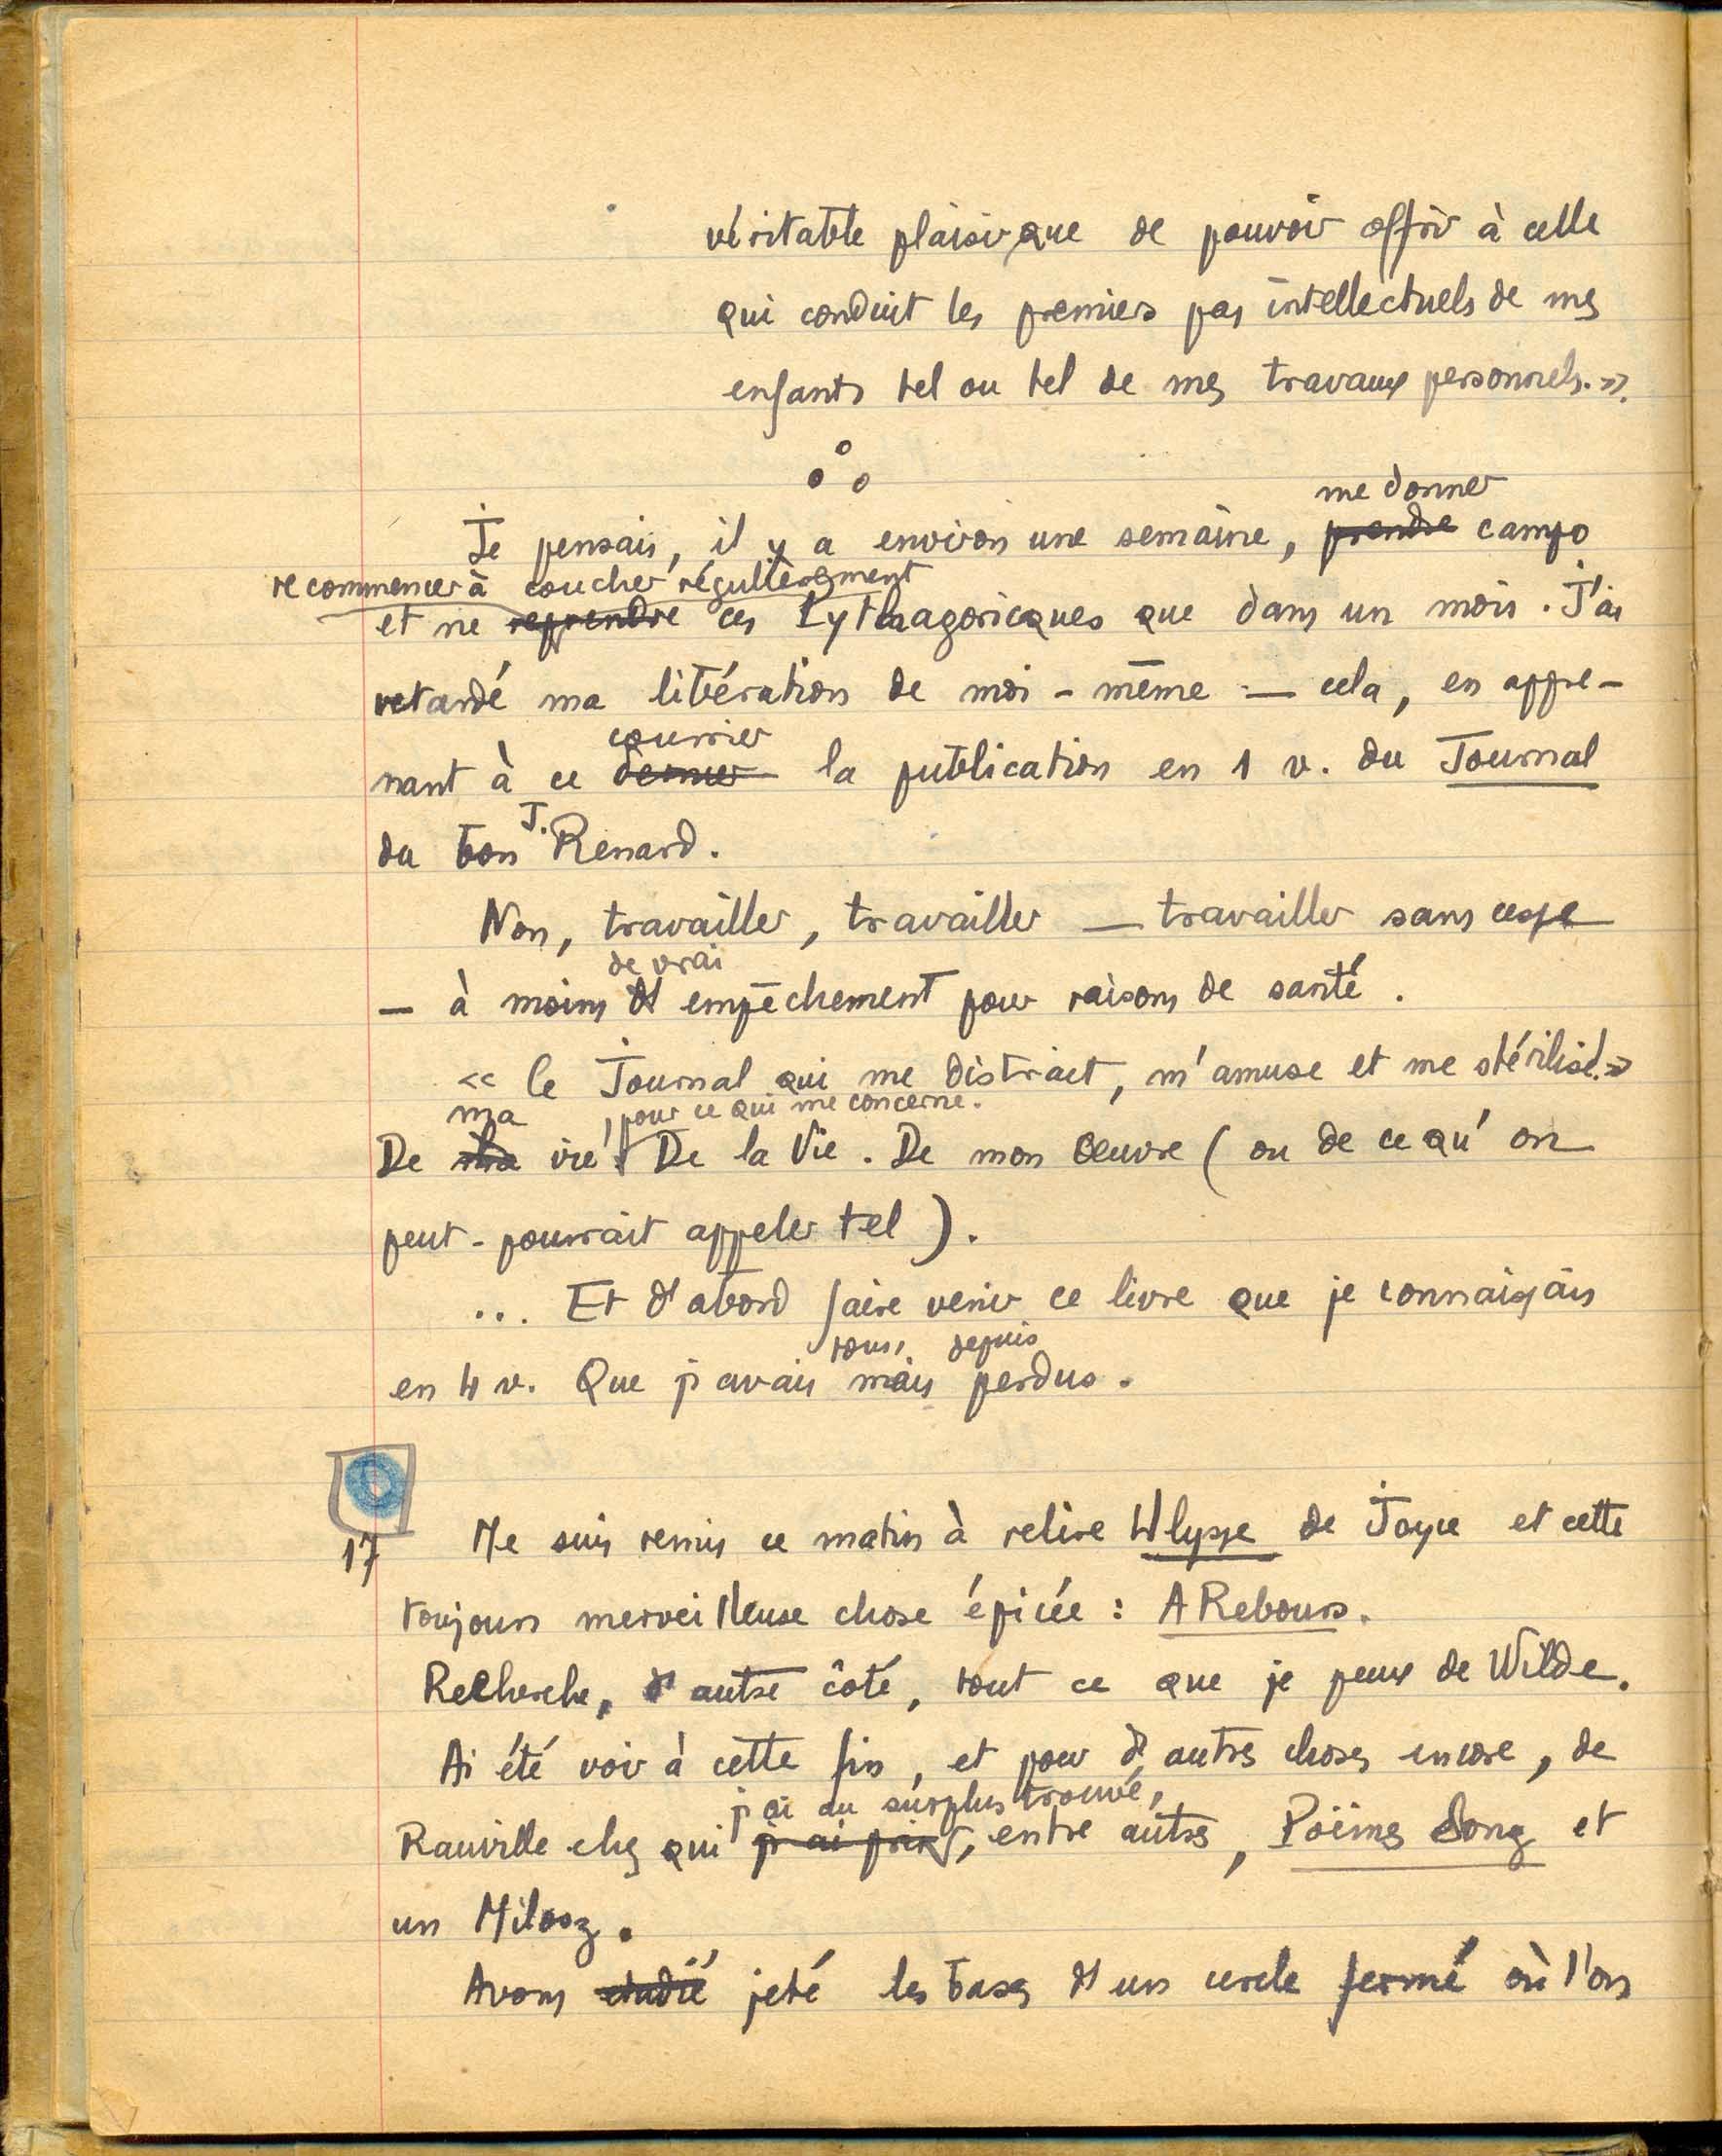 véritable plaisir que de pouvoir offrir à celle
qui conduit les premiers pas intellectuels de mes
enfants tel ou tel de mes travaux personnels. ».
me donner
Je pensais, il y a environ une semaine, prendre campo
recommencer à coucher régulièrement
et ne reprendre ces Pythagoricques que dans un mois. J'ai
retardé ma libération de moi-même — cela, en appre-
courrier
nant à ce dernier la publication en 1 v. du Journal
J.
du bon Renard.
Non, travailler, travailler — travailler sans cesse
de vrai
— à moins d'empêchement pour raisons de santé.
« le Journal qui me distrait, m'amuse et me stérilise. »
ma , pour ce qui me concerne.
De vie. De la Vie. De mon Oeuvre (ou de ce qu'on
peut-pourrait appeler tel).
... Et d'abord faire venir ce livre que je connaissais
tous, depuis
en 4 v. Que j'avais mais perdus.
17 Me suis remis ce matin à relire Ulysse de Joyce et cette
toujours merveilleuse chose épicée : A Rebours.
Recherche, d'autre côté, tout ce que je peux de Wilde.
Ai été voir à cette fin, et pour d'autres choses encore, de
j'ai au surplus trouvé,
Rauville chez qui j'ai pris, entre autres, Poèmes Song et
un Milosz.
Avons étudié jeté les bases d'un cercle fermé où l'on